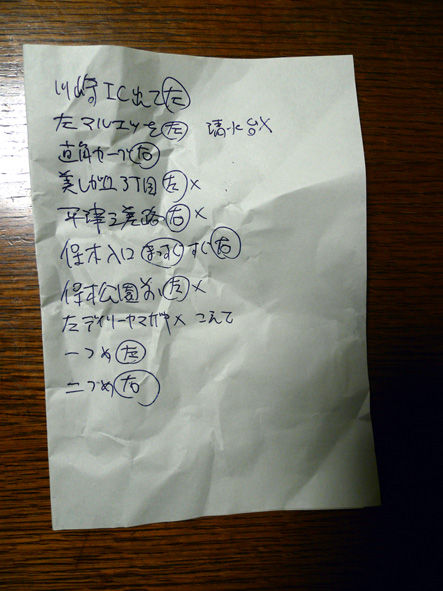 川崎IC出て左
左マルエツを左 清水台×
直角カーブ右
美しが丘3丁目左×
平津三差路右×
保木入口まっすぐすぐ右
保木公園前左×
左デイリーヤマザキ× こえて
一つめ左
二つめ右